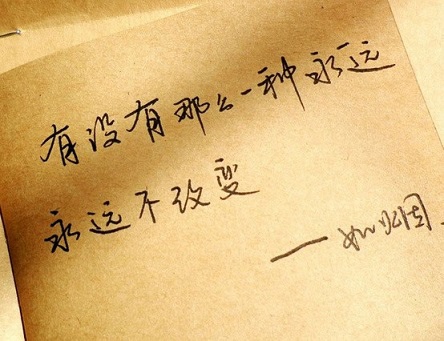 有没有那么一种永远
永远不改变
——如烟